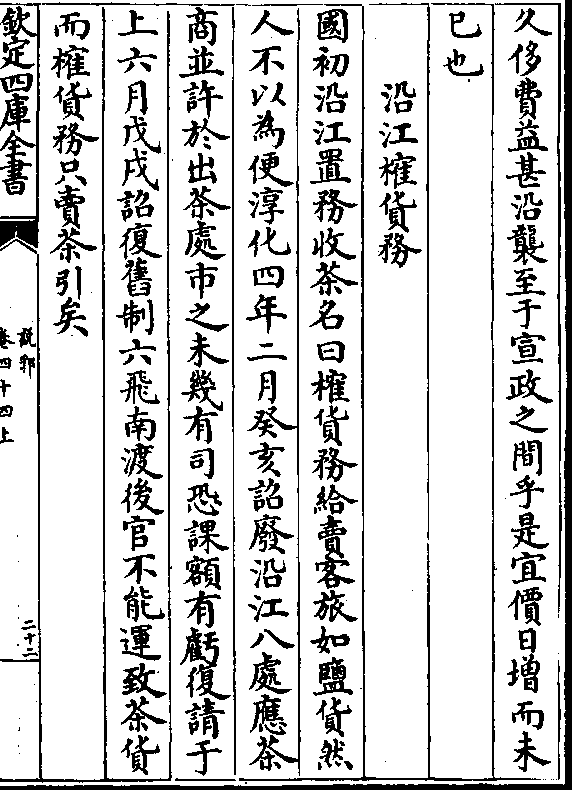 久侈費益甚沿襲至于宣政之間乎是宜價日增而未
已也
沿江榷貨務
國初沿江置務收茶名曰榷貨務給賣客旅如鹽貨然
人不以為便淳化四年二月癸亥詔廢沿江八處應茶
商並許於出茶處市之未幾有司恐課額有虧復請于
上六月戊戌詔復舊制六飛南渡後官不能運致茶貨
而榷貨務只賣茶引矣
欽定四庫全書
說郛
卷四十四上
二十二